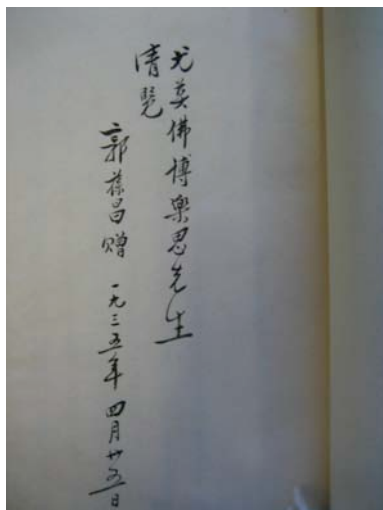 尤莫佛博樂思先生
清覽
郭葆昌贈 一九三五年四月廿五日